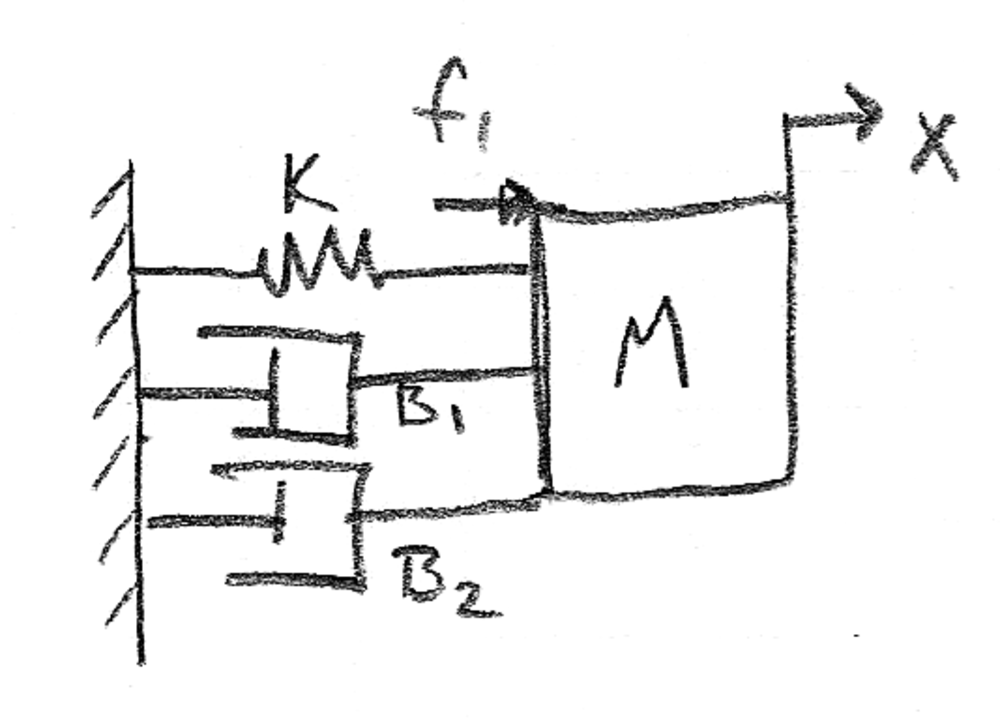 f₁
x
K
M
B₁
B₂